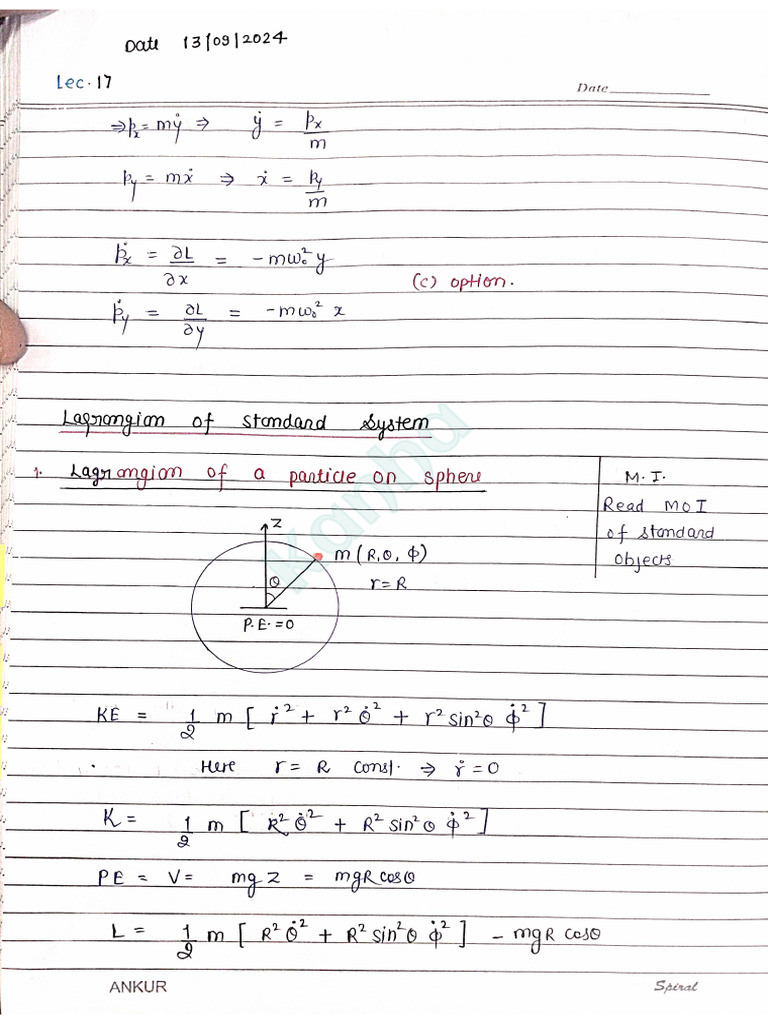 Date 13/09/2024
Lec. 17
Date
⇒ pₓ = mẏ ⇒ ẏ = pₓ/m
p_y = mẋ ⇒ ẋ = p_y/m
ṗₓ = ∂L/∂x = -mω₀²y
(c) option.
ṗ_y = ∂L/∂y = -mω₀² x
Lagrangian of standard System
1. Lagrangian of a particle on sphere
M.I.
Read MOI
of standard
objects
Z
m (R, θ, φ)
r = R
θ
P.E. = 0
KE = 1/2 m [ ṙ² + r² θ̇² + r² sin²θ φ̇² ]
Here r = R const. ⇒ ṙ = 0
K = 1/2 m [ R² θ̇² + R² sin²θ φ̇² ]
PE = V = mg Z = mgR cosθ
L = 1/2 m [ R² θ̇² + R² sin²θ φ̇² ] - mgR cosθ
Kanha
ANKUR
Spiral